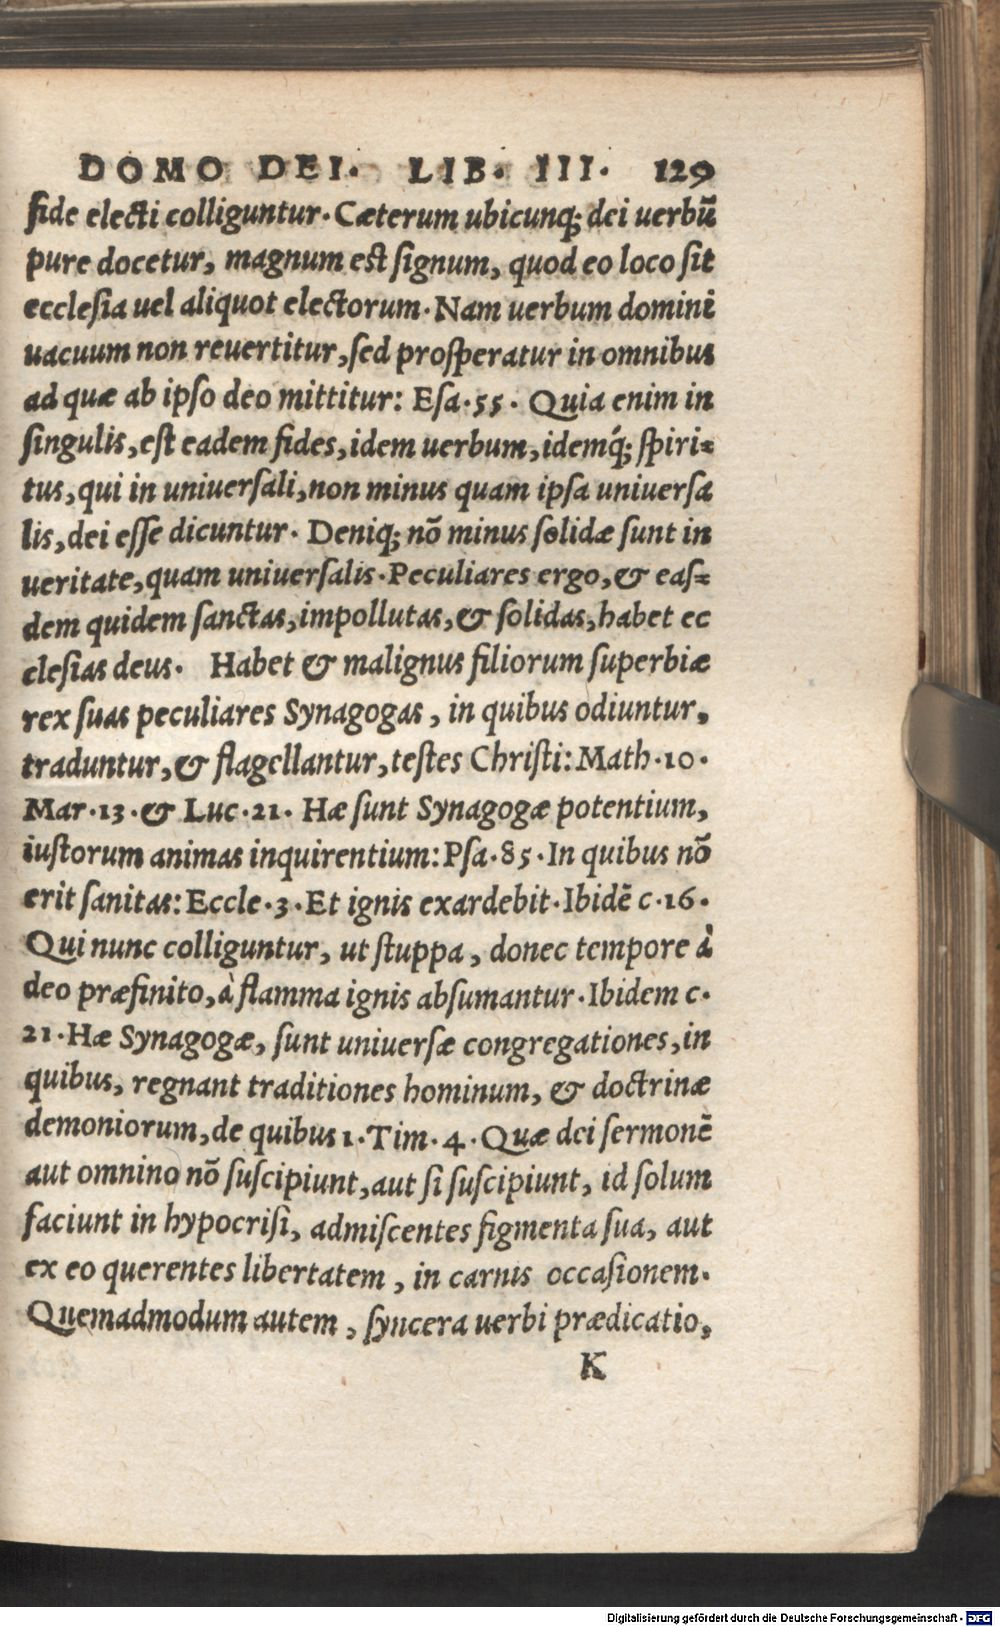 DOMO DEI. LIB. III. 129
fide electi colliguntur. Cæterum ubicunq; dei uerbū
pure docetur, magnum est signum, quod eo loco sit
ecclesia uel aliquot electorum. Nam uerbum domini
uacuum non reuertitur, sed prosperatur in omnibus
ad quæ ab ipso deo mittitur: Esa. 55. Quia enim in
singulis, est eadem fides, idem uerbum, idemq́; spiri-
tus, qui in uniuersali, non minus quam ipsa uniuersa
lis, dei esse dicuntur. Deniq; nō minus solidæ sunt in
ueritate, quam uniuersalis. Peculiares ergo, & eas-
dem quidem sanctas, impollutas, & solidas, habet ec
clesias deus. Habet & malignus filiorum superbiæ
rex suas peculiares Synagogas, in quibus odiuntur,
traduntur, & flagellantur, testes Christi: Math. 10.
Mar. 13. & Luc. 21. Hæ sunt Synagogæ potentium,
iustorum animas inquirentium: Psa. 85. In quibus nō
erit sanitas: Eccle. 3. Et ignis exardebit. Ibidē c. 16.
Qui nunc colliguntur, ut stuppa, donec tempore à
deo præfinito, à flamma ignis absumantur. Ibidem c.
21. Hæ Synagogæ, sunt uniuersæ congregationes, in
quibus, regnant traditiones hominum, & doctrinæ
demoniorum, de quibus 1. Tim. 4. Quæ dei sermonē
aut omnino nō suscipiunt, aut si suscipiunt, id solum
faciunt in hypocrisi, admiscentes figmenta sua, aut
ex eo querentes libertatem, in carnis occasionem.
Quemadmodum autem, syncera uerbi prædicatio,
K
Digitalisierung gefördert durch die Deutsche Forschungsgemeinschaft - DFG